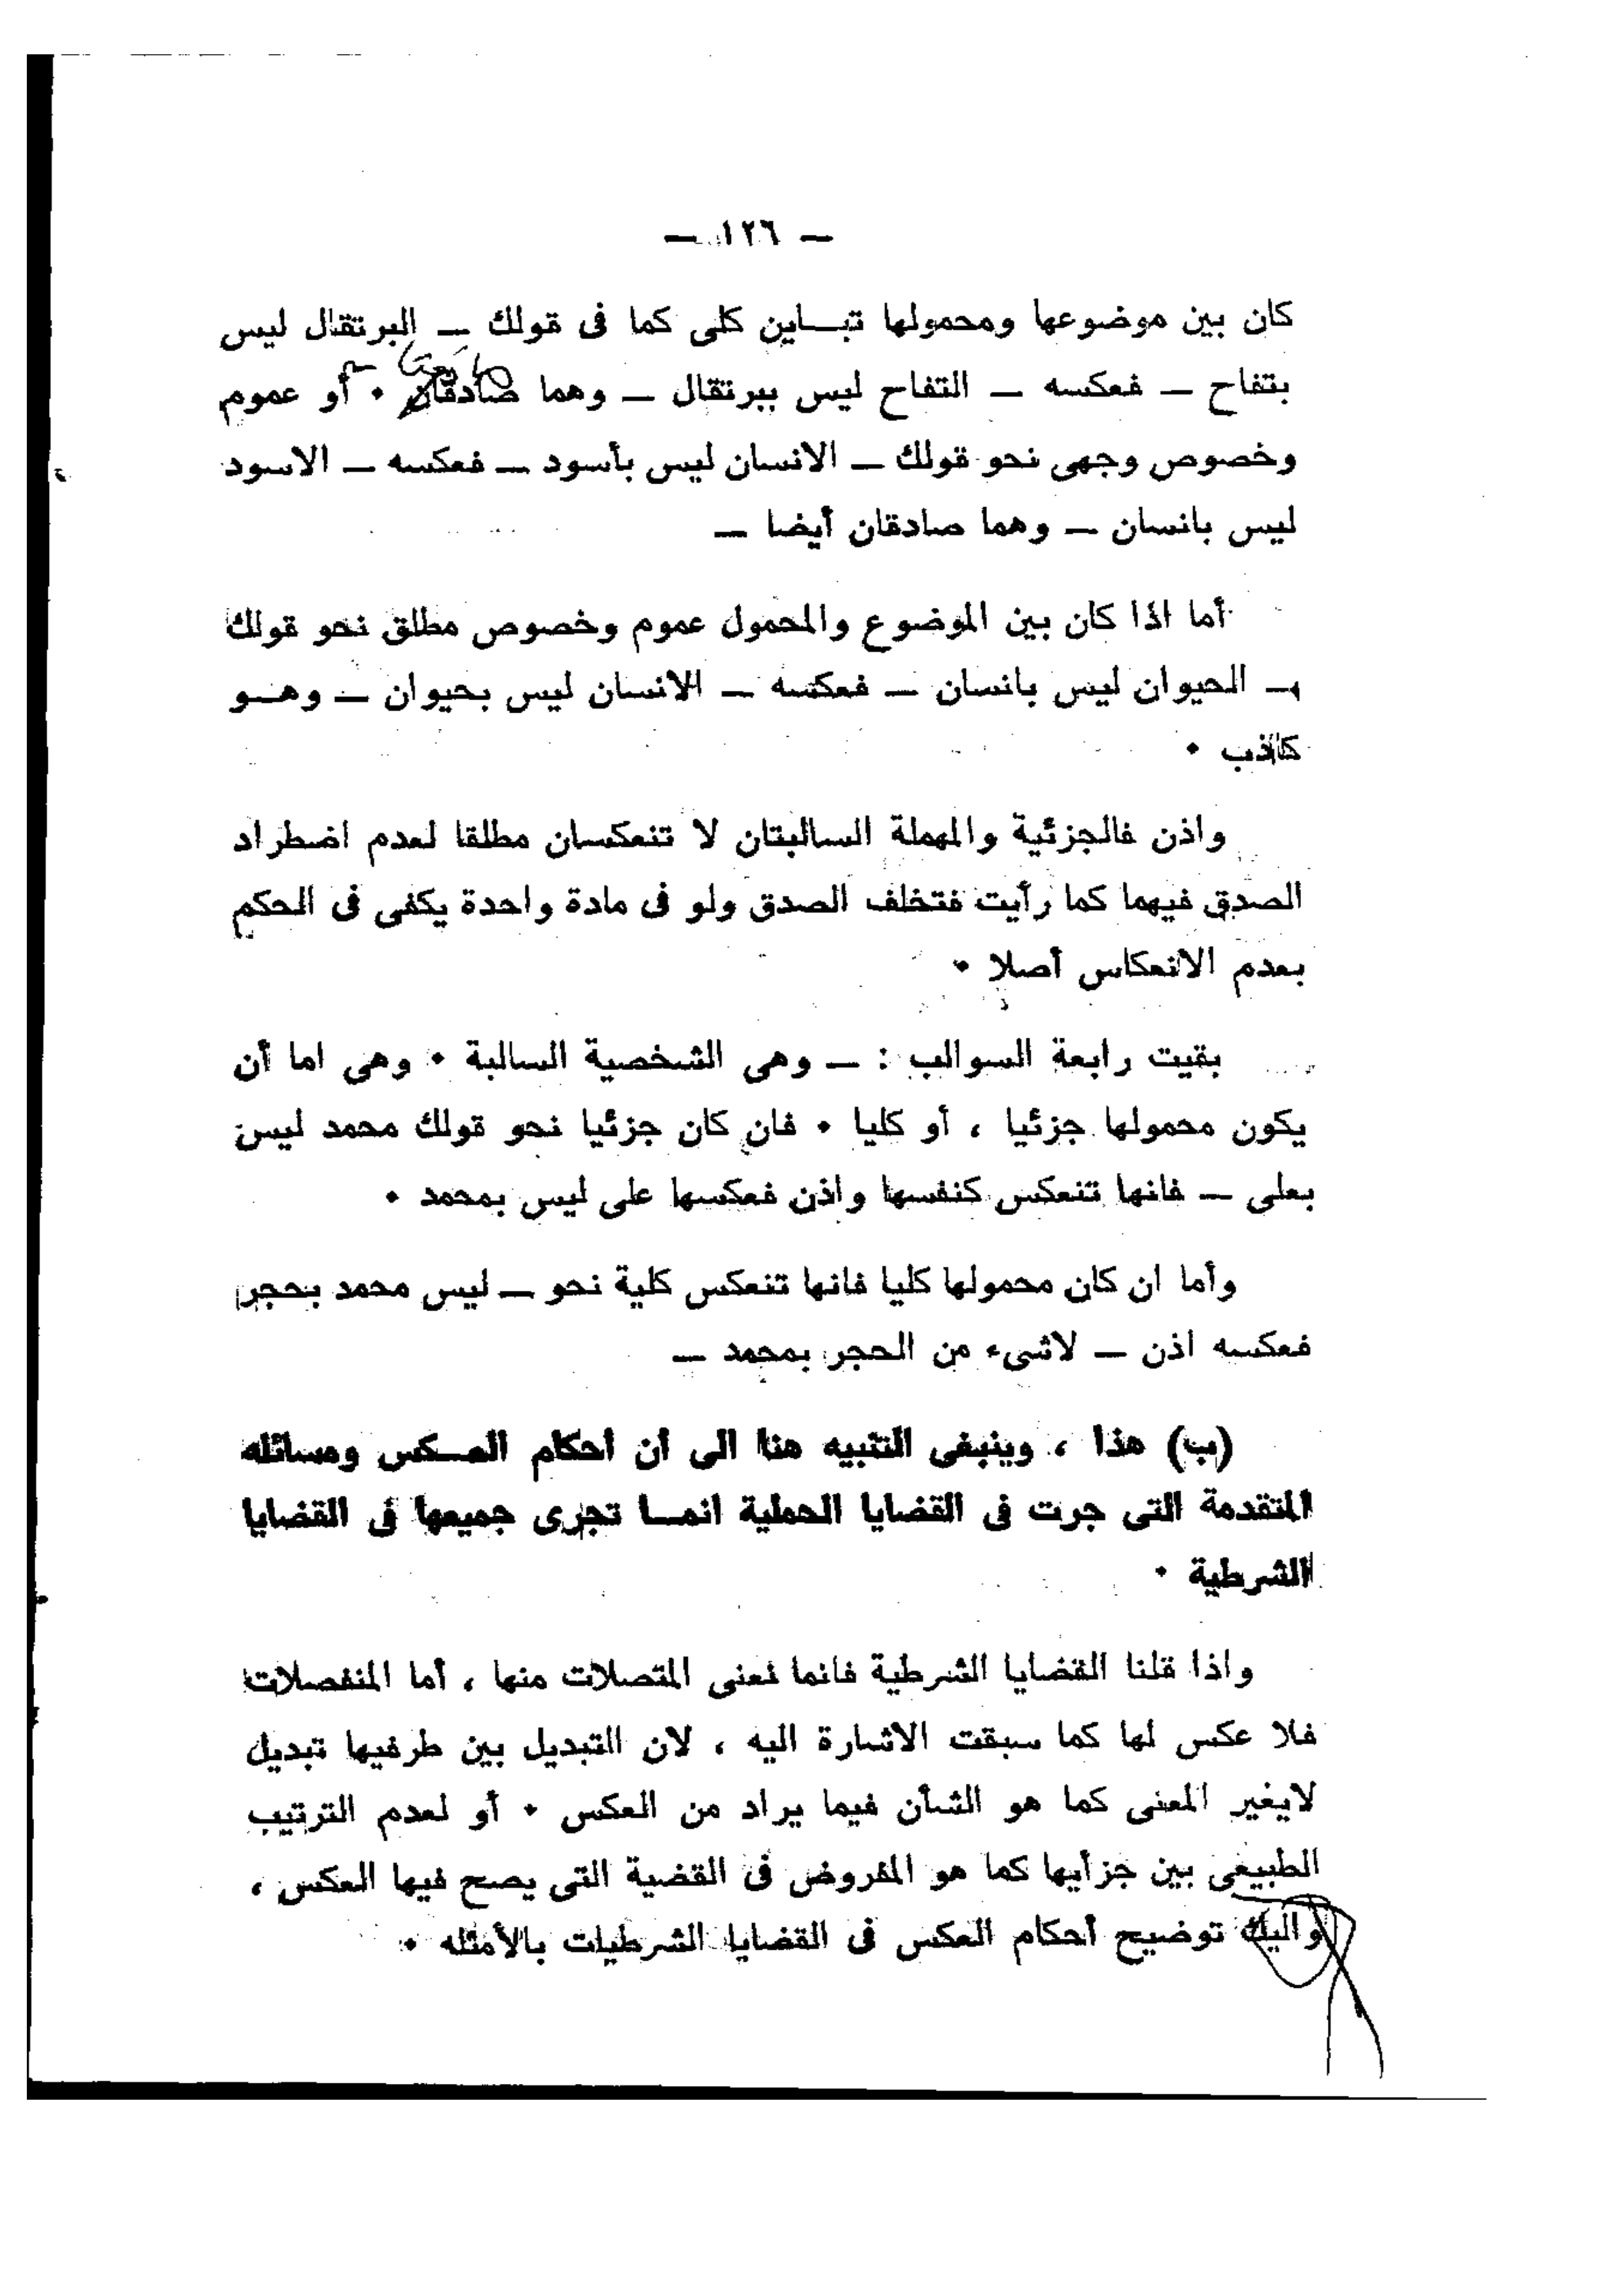 — ١٢٦ —
كان بين موضوعها ومحمولها تبـــاين كلى كما فى قولك — البرتقال ليس
بتفاح — فعكسه — التفاح ليس ببرتقال — وهما صادقان • أو عموم
وخصوص وجهى نحو قولك — الانسان ليس بأسود — فعكسه — الاسود
ليس بانسان — وهما صادقان أيضا —
أما اذا كان بين الموضوع والمحمول عموم وخصوص مطلق نحو قولك
— الحيوان ليس بانسان — فعكسه — الانسان ليس بحيوان — وهـــو
كاذب •
واذن فالجزئية والمهملة السالبتان لا تنعكسان مطلقا لعدم اضطراد
الصدق فيهما كما رأيت فتخلف الصدق ولو فى مادة واحدة يكفى فى الحكم
بعدم الانعكاس أصلا •
بقيت رابعة السوالب : — وهى الشخصية السالبة • وهى اما أن
يكون محمولها جزئيا ، أو كليا • فان كان جزئيا نحو قولك محمد ليس
بعلى — فانها تنعكس كنفسها واذن فعكسها على ليس بمحمد •
وأما ان كان محمولها كليا فانها تنعكس كلية نحو — ليس محمد بحجر
فعكسه اذن — لاشىء من الحجر بمحمد —
(ب) هذا ، وينبغى التنبيه هنا الى أن أحكام العـــكس ومسائله
المتقدمة التى جرت فى القضايا الحملية انمـــا تجرى جميعها فى القضايا
الشرطية •
واذا قلنا القضايا الشرطية فانما نعنى المتصلات منها ، أما المنفصلات
فلا عكس لها كما سبقت الاشارة اليه ، لان التبديل بين طرفيها تبديل
لايغير المعنى كما هو الشأن فيما يراد من العكس • أو لعدم الترتيب
الطبيعى بين جزأيها كما هو المفروض فى القضية التى يصح فيها العكس ،
واليك توضيح أحكام العكس فى القضايا الشرطيات بالأمثله •